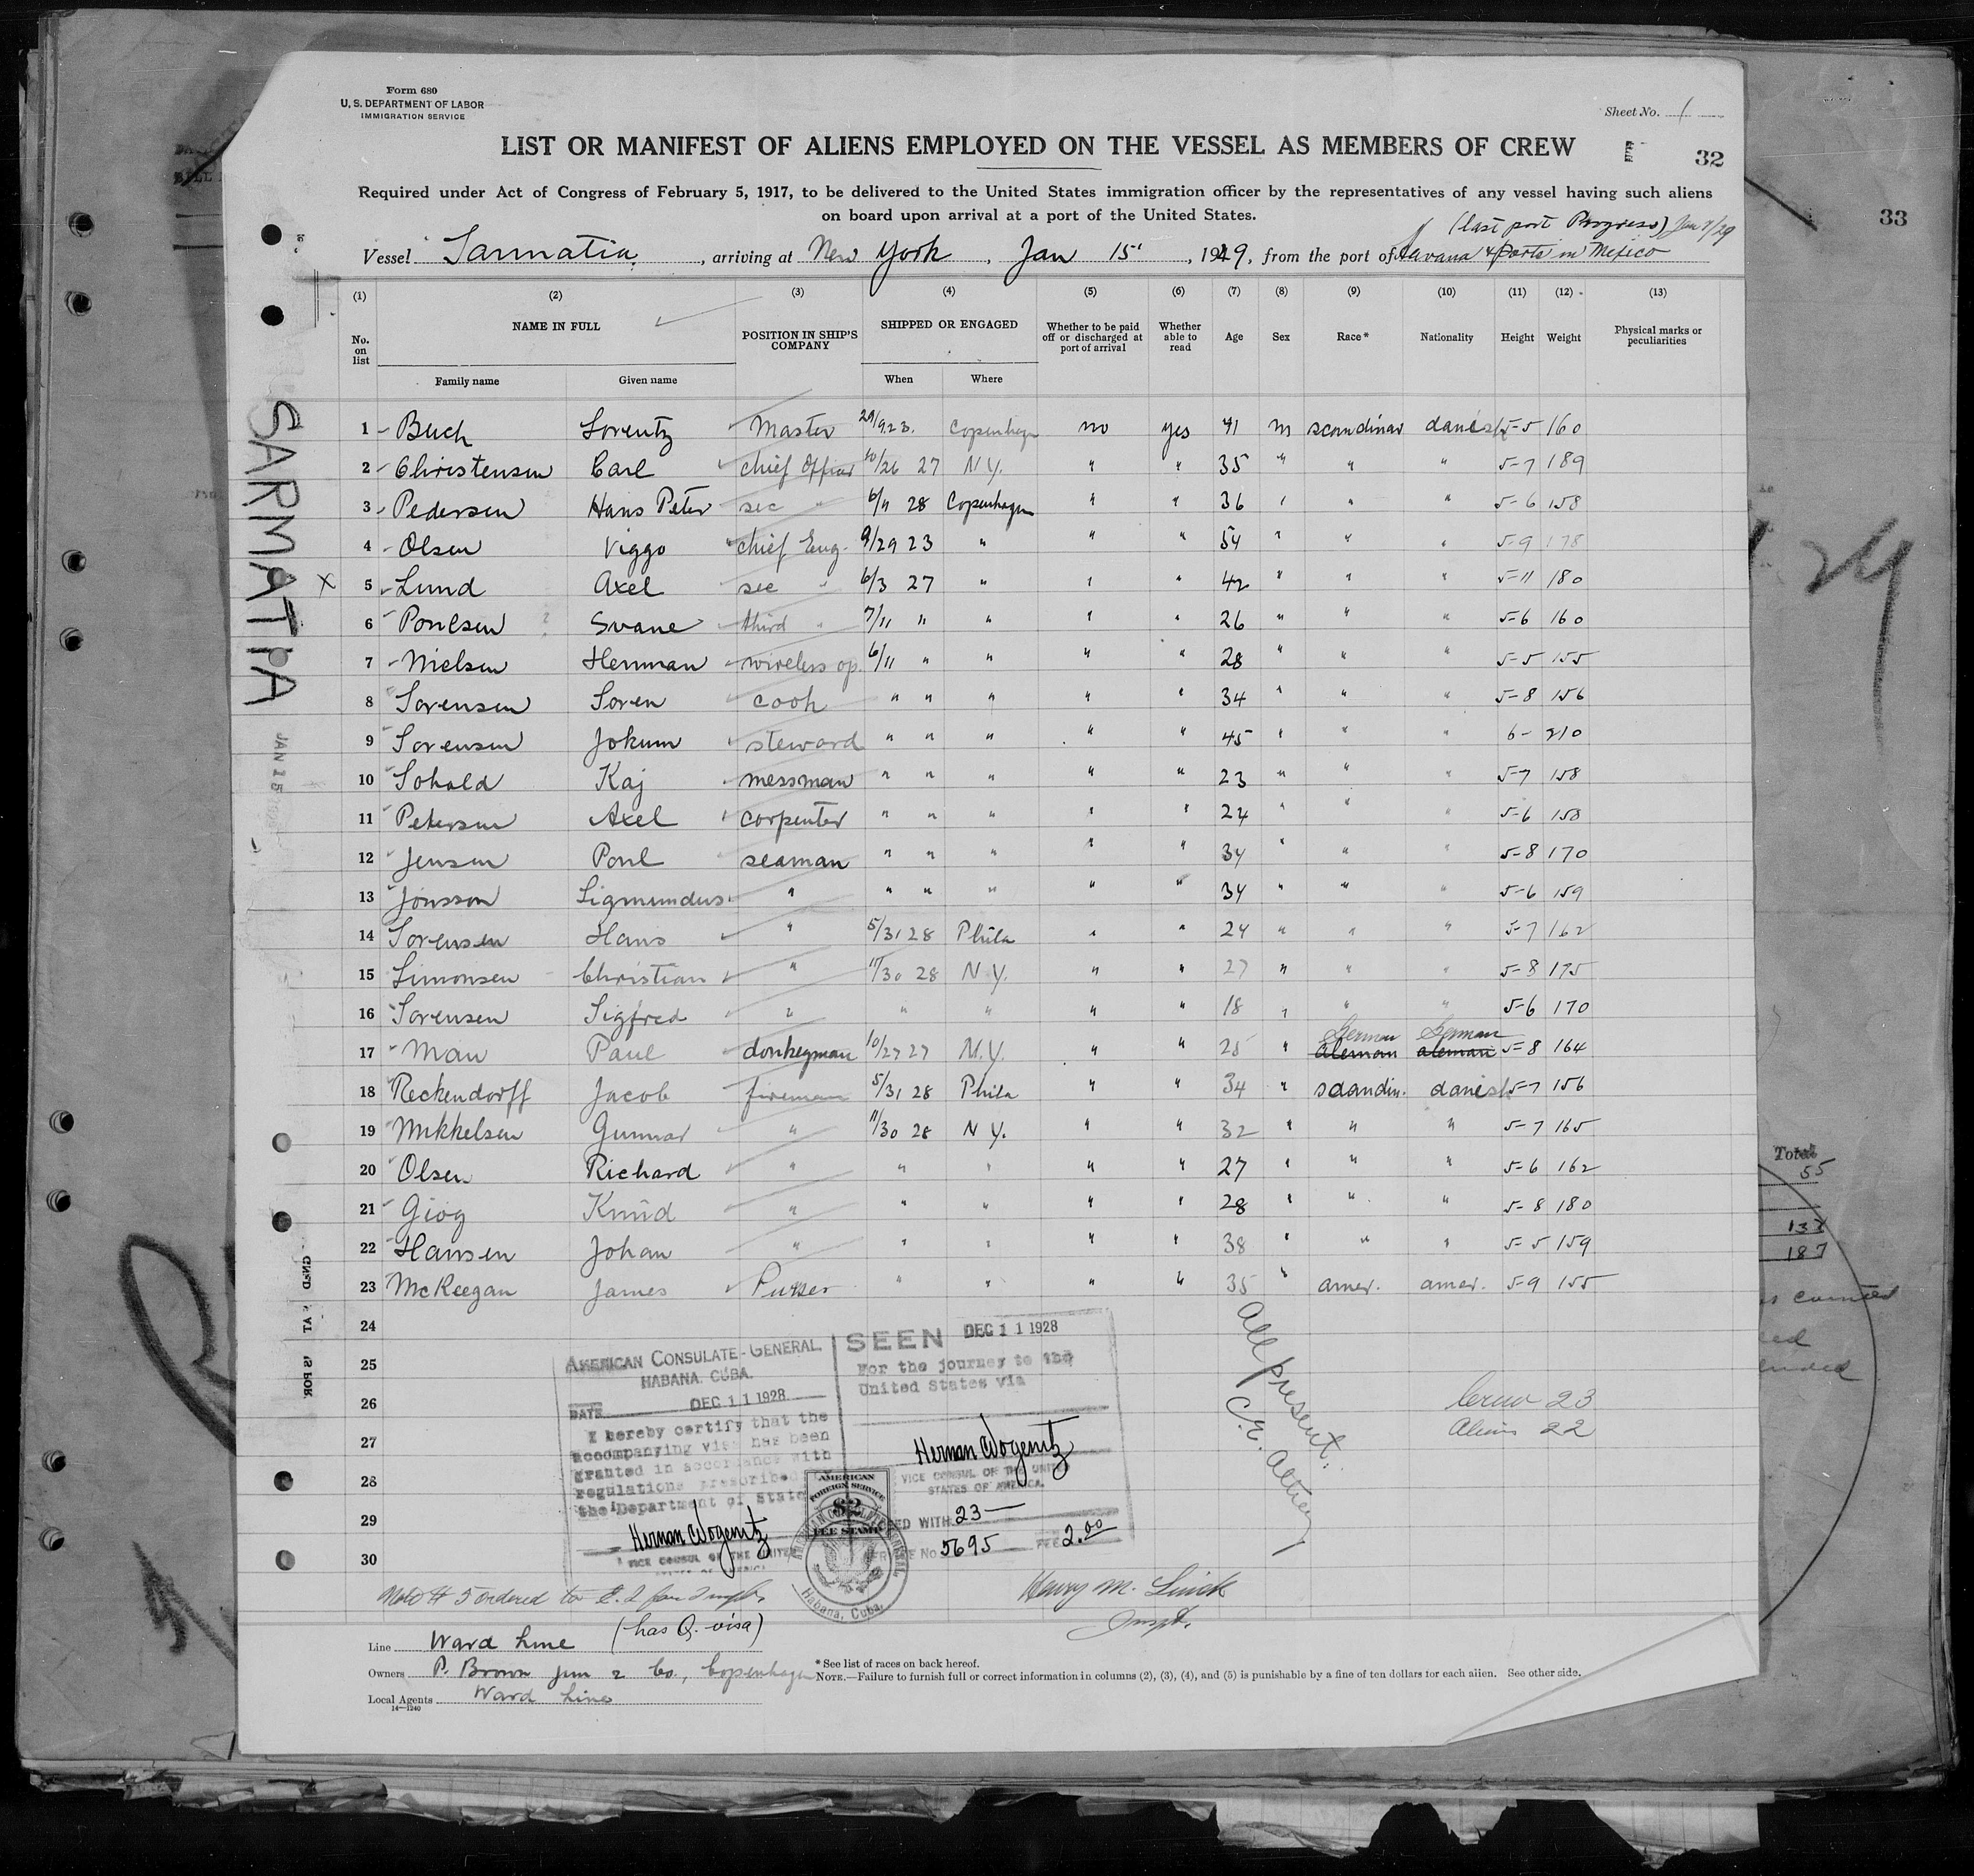 Form 680
U. S. DEPARTMENT OF LABOR
IMMIGRATION SERVICE
Sheet No. 1
LIST OR MANIFEST OF ALIENS EMPLOYED ON THE VESSEL AS MEMBERS OF CREW
32
33
Required under Act of Congress of February 5, 1917, to be delivered to the United States immigration officer by the representatives of any vessel having such aliens
on board upon arrival at a port of the United States.
(last port Progreso) Jan 7/29
Vessel Sarmatia, arriving at New York, Jan 15, 1929, from the port of Havana & Ports in Mexico
(1) (2) (3) (4) (5) (6) (7) (8) (9) (10) (11) (12) (13)
No. on list NAME IN FULL POSITION IN SHIP'S COMPANY SHIPPED OR ENGAGED Whether to be paid off or discharged at port of arrival Whether able to read Age Sex Race* Nationality Height Weight Physical marks or peculiarities
Family name Given name When Where
1 Buch Lorentz Master 29/9 23. Copenhagen no yes 41 m scandinav danish 5-5 160
2 Christensen Carl chief Officer 10/26 27 N.Y. " " 35 " " " 5-7 189
3 Pedersen Hans Peter sec " 6/11 28 Copenhagen " " 36 " " " 5-6 158
4 Olsen Viggo chief Eng. 9/29 23 " " " 54 " " " 5-9 178
X 5 Lund Axel sec " 6/3 27 " " " 42 " " " 5-11 180
6 Poulsen Svane third " 7/11 " " " " 26 " " " 5-6 160
7 Nielsen Herman wireless op. 6/11 " " " " 28 " " " 5-5 155
8 Sorensen Soren cook " " " " " 34 " " " 5-8 156
9 Sorensen Jokum steward " " " " " 45 " " " 6- 210
10 Sohold Kaj messman " " " " " 23 " " " 5-7 158
11 Petersen Axel carpenter " " " " " 24 " " " 5-6 158
12 Jensen Poul seaman " " " " " 34 " " " 5-8 170
13 Jonsson Sigmundus " " " " " " 34 " " " 5-6 159
14 Sorensen Hans " 5/31 28 Phila " " 24 " " " 5-7 162
15 Simonsen Christian " 11/30 28 N.Y. " " 27 " " " 5-8 175
16 Sorensen Sigfred " " " " " 18 " " " 5-6 170
German German
17 Man Paul donkeyman 10/27 27 N.Y. " " 25 " aleman aleman 5-8 164
18 Reckendorff Jacob fireman 5/31 28 Phila " " 34 " scandin. danish 5-7 156
19 Mikkelsen Gunnar " 11/30 28 N.Y. " " 32 " " " 5-7 165
20 Olsen Richard " " " " " 27 " " " 5-6 162
21 Giog Knud " " " " " 28 " " " 5-8 180
22 Hansen Johan " " " " " 38 " " " 5-5 159
23 McKeegan James Purser " " " " 35 " amer. amer. 5-9 155
24
25
26
27
28
29
30
SARMATIA
JAN 15
AMERICAN CONSULATE-GENERAL
HABANA. CUBA.
DATE DEC 11 1928
I hereby certify that the
accompanying visa has been
granted in accordance with
regulations prescribed
the Department of State
Hernan Vogenitz
VICE CONSUL OF THE UNITED
SEEN DEC 11 1928
For the journey to the
United States via
Hernan Vogenitz
VICE CONSUL OF THE UNITED
STATES OF AMERICA.
WITH 23
No 5695 FEE 2.00
AMERICAN
FOREIGN SERVICE
$2
FEE STAMP
Habana, Cuba.
All present.
Crew 23
Aliens 22
Note # 5 ordered to E. I.
(has Q. visa)
Henry M. Linick
Inspt.
Line Ward Line
Owners P. Brown jun & Co., Copenhagen
Local Agents Ward Line
14—1240
* See list of races on back hereof.
NOTE.—Failure to furnish full or correct information in columns (2), (3), (4), and (5) is punishable by a fine of ten dollars for each alien. See other side.
Total
55
133
187